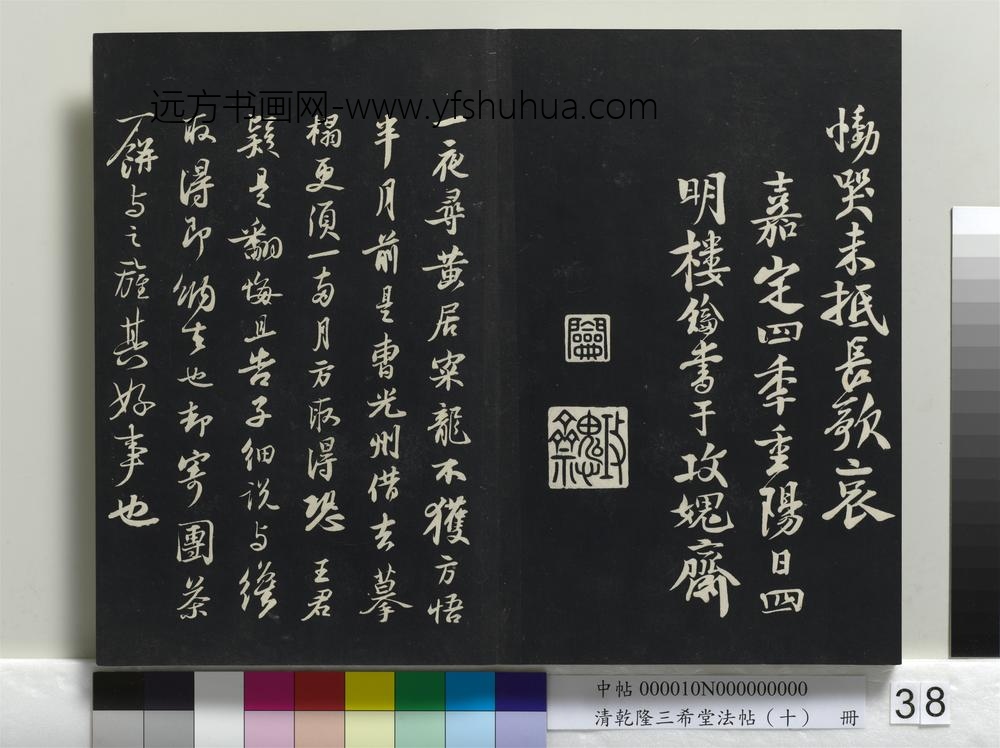 远方书画网-www.yfshuhua.com
慟哭未抵長歌哀
嘉定四季重陽日四
明樓鑰書于攻媿齋
鑰
攻媿齋
一夜尋黃居寀龍不獲方悟
半月前是曹光州借去摹
榻更須一兩月方取得恐王君
疑是翻悔且告子細說与纔
取得即納去也却寄團茶
一餅与之旌其好事也
中帖 000010N000000000
清乾隆三希堂法帖（十） 冊
38